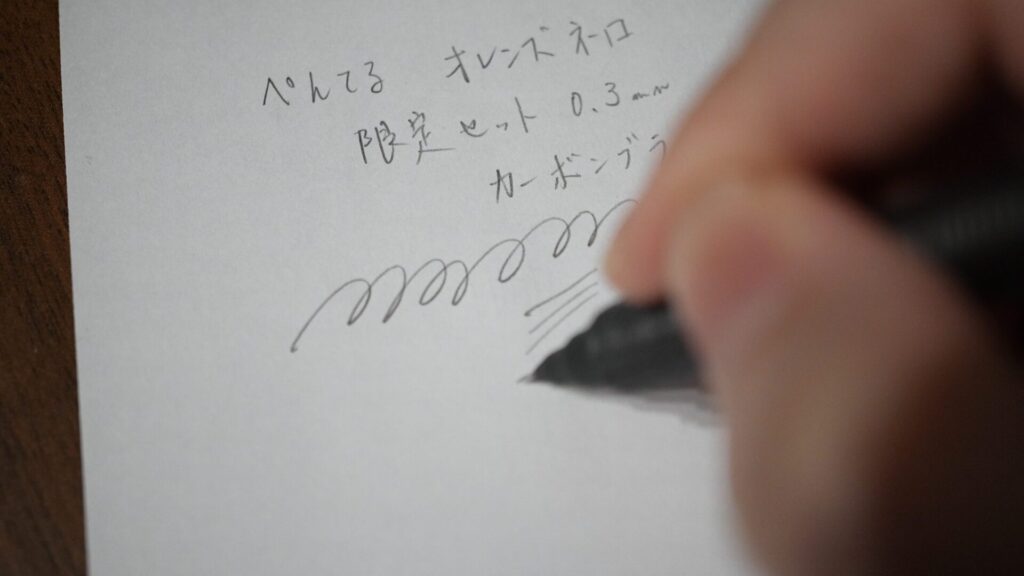 ぺんてる オレンズネーロ
限定セット 0.3mm
カーボンブラ